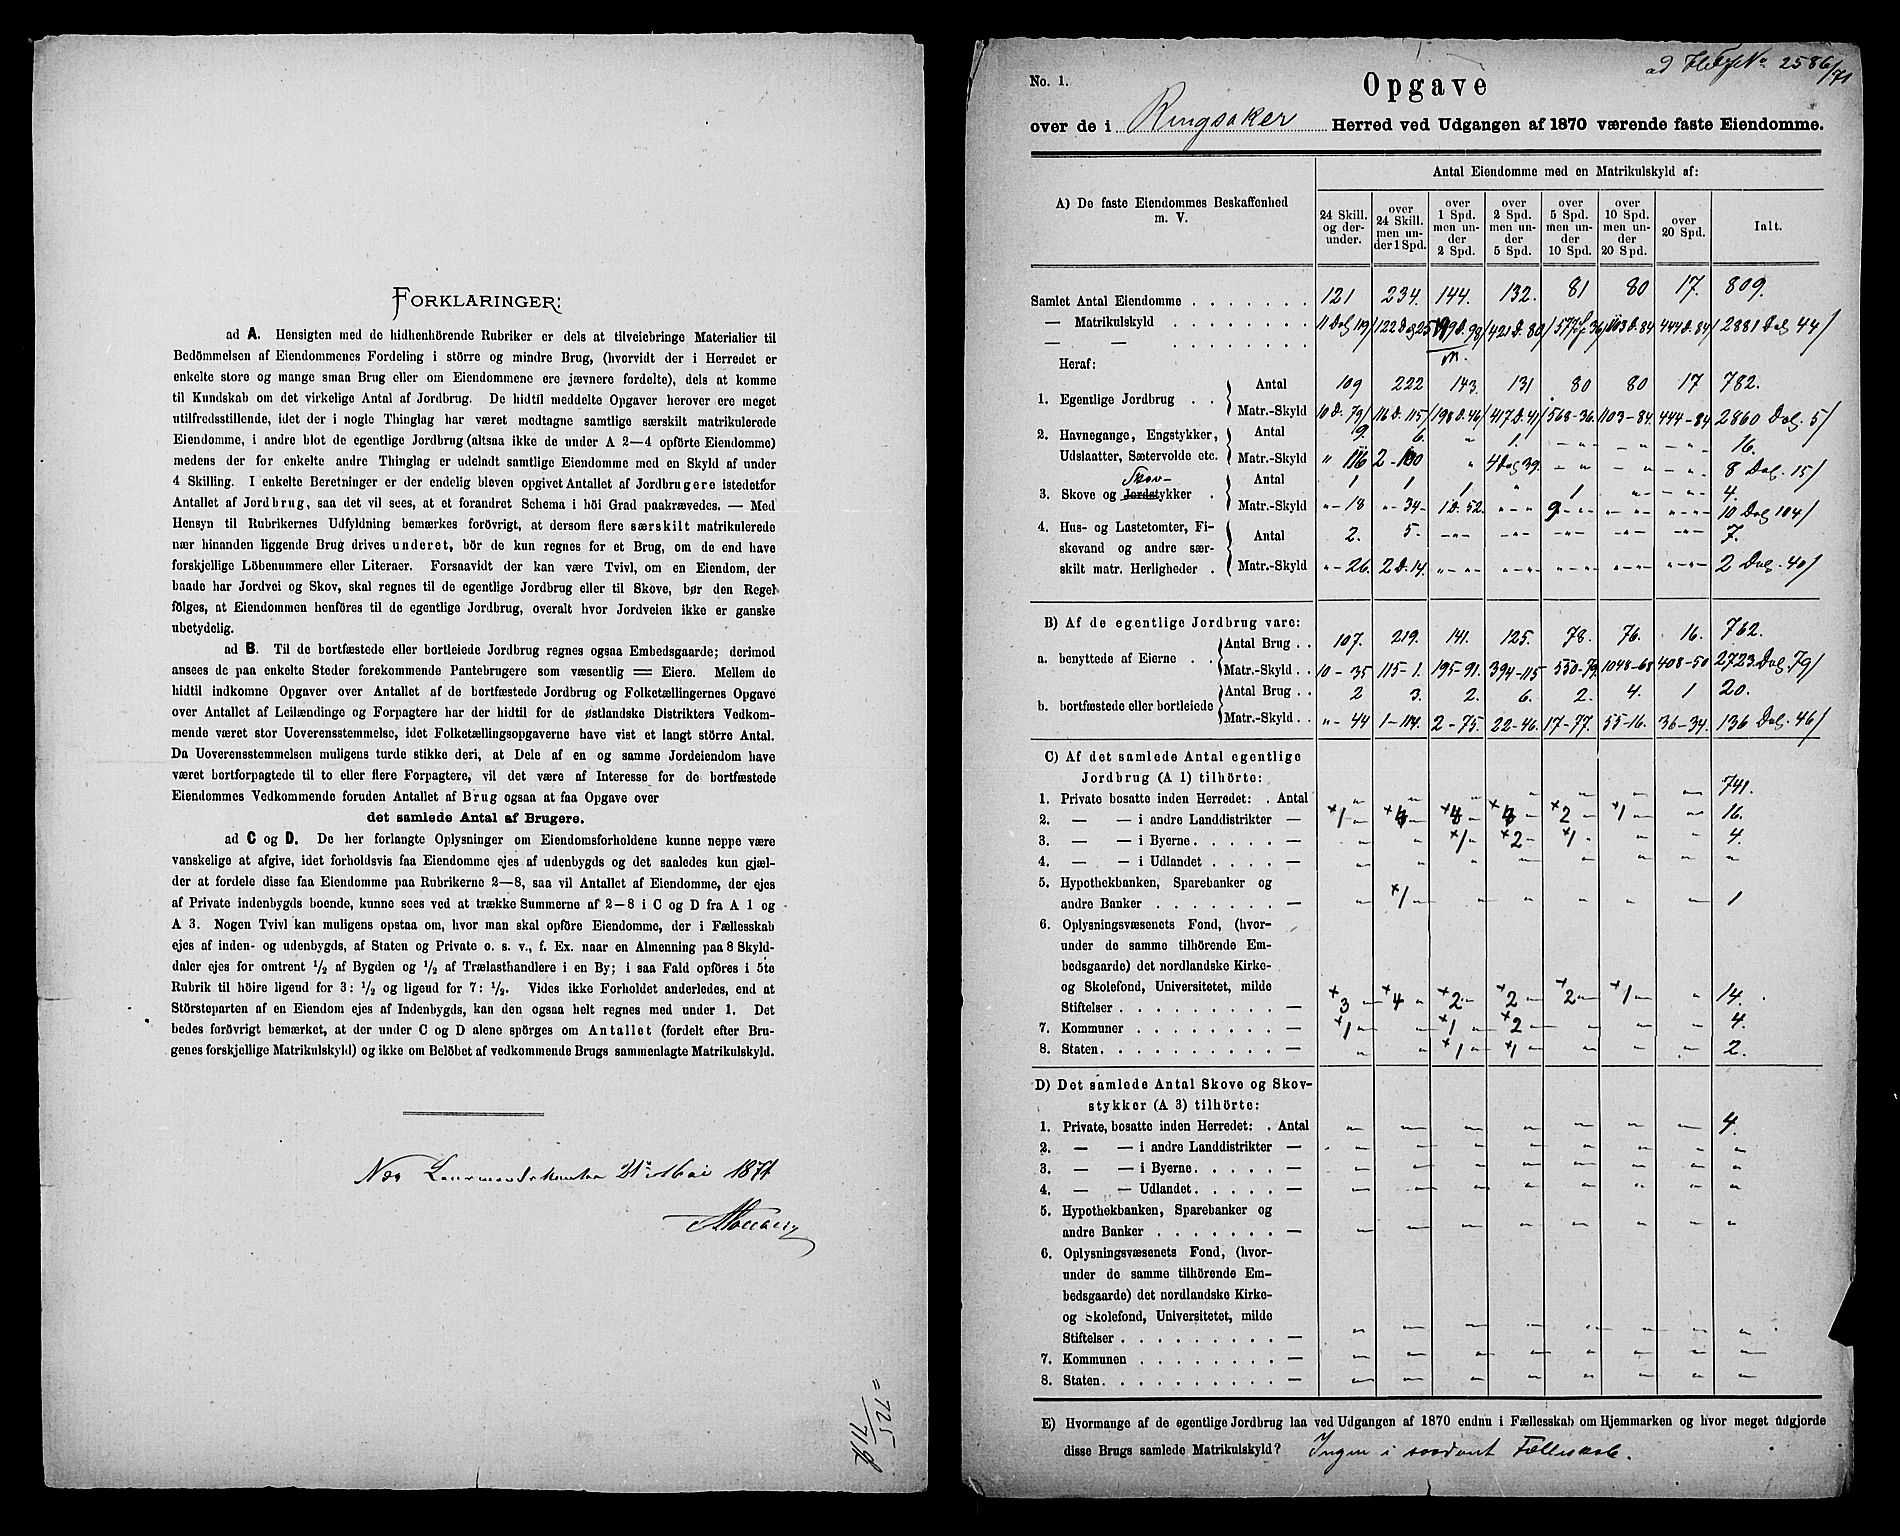 FORKLARINGER:
ad A. Hensigten med de hidhenhörende Rubriker er dels at tilveiebringe Materialier til
Bedömmelsen af Eiendommenes Fordeling i större og mindre Brug, (hvorvidt der i Herredet er
enkelte store og mange smaa Brug eller om Eiendommene ere jævnere fordelte), dels at komme
til Kundskab om det virkelige Antal af Jordbrug. De hidtil meddelte Opgaver herover ere meget
utilfredsstillende, idet der i nogle Thinglag har været medtagne samtlige særskilt matrikulerede
Eiendomme, i andre blot de egentlige Jordbrug (altsaa ikke de under A 2—4 opförte Eiendomme)
medens der for enkelte andre Thinglag er udeladt samtlige Eiendomme med en Skyld af under
4 Skilling. I enkelte Beretninger er der endelig bleven opgivet Antallet af Jordbrugere istedetfor
Antallet af Jordbrug, saa det vil sees, at et forandret Schema i höi Grad paakrævedes. — Med
Hensyn til Rubrikernes Udfyldning bemærkes forövrigt, at dersom flere særskilt matrikulerede
nær hinanden liggende Brug drives underet, bör de kun regnes for et Brug, om de end have
forskjellige Löbenummere eller Literaer. Forsaavidt der kan være Tvivl, om en Eiendom, der
baade har Jordvei og Skov, skal regnes til de egentlige Jordbrug eller til Skove, bør den Regel
fölges, at Eiendommen henföres til de egentlige Jordbrug, overalt hvor Jordveien ikke er ganske
ubetydelig.
ad B. Til de bortfæstede eller bortleiede Jordbrug regnes ogsaa Embedsgaarde; derimod
ansees de paa enkelte Steder forekommende Pantebrugere som væsentlig = Eiere. Mellem de
hidtil indkomne Opgaver over Antallet af de bortfæstede Jordbrug og Folketællingernes Opgave
over Antallet af Leilændinge og Forpagtere har der hidtil for de østlandske Distrikters Vedkom-
mende været stor Uoverensstemmelse, idet Folketællingsopgaverne have vist et langt större Antal.
Da Uoverensstemmelsen muligens turde stikke deri, at Dele af en og samme Jordeiendom have
været bortforpagtede til to eller flere Forpagtere, vil det være af Interesse for de bortfæstede
Eiendommes Vedkommende foruden Antallet af Brug ogsaa at faa Opgave over
det samlede Antal af Brugere.
ad C og D. De her forlangte Oplysninger om Eiendomsforholdene kunne neppe være
vanskelige at afgive, idet forholdsvis faa Eiendomme ejes af udenbygds og det saaledes kun gjæl-
der at fordele disse faa Eiendomme paa Rubrikerne 2—8, saa vil Antallet af Eiendomme, der ejes
af Private indenbygds boende, kunne sees ved at trække Summerne af 2—8 i C og D fra A 1 og
A 3. Nogen Tvivl kan muligens opstaa om, hvor man skal opföre Eiendomme, der i Fællesskab
ejes af inden- og udenbygds, af Staten og Private o. s. v., f. Ex. naar en Almenning paa 8 Skyld-
daler ejes for omtrent 1/2 af Bygden og 1/2 af Trælasthandlere i en By; i saa Fald opföres i 5te
Rubrik til höire ligeud for 3: 1/2 og ligeud for 7: 1/2. Vides ikke Forholdet anderledes, end at
Störsteparten af en Eiendom ejes af Indenbygds, kan den ogsaa helt regnes med under 1. Det
bedes forövrigt bemærket, at der under C og D alene spörges om Antallet (fordelt efter Bru-
genes forskjellige Matrikulskyld) og ikke om Belöbet af vedkommende Brugs sammenlagte Matrikulskyld.
Næs 21de Mai 1871
725
ad No 2586/71
No. 1.
Opgave
over de i Ringsaker Herred ved Udgangen af 1870 værende faste Eiendomme.
A) De faste Eiendommes Beskaffenhed m. V.
Antal Eiendomme med en Matrikulskyld af:
24 Skill. og der- under.
over 24 Skill. men un- der 1 Spd.
over 1 Spd. men un- der 2 Spd.
over 2 Spd. men un- der 5 Spd.
over 5 Spd. men un- der 10 Spd.
over 10 Spd. men un- der 20 Spd.
over 20 Spd.
Ialt.
Samlet Antal Eiendomme 121 234. 144. 132. 81 80 17. 809.
— Matrikulskyld 11 Dal 119 122 Dal 25 199 D. 98 421 D. 80 577 D. 36 1103 D. 84 444 D. 84 2881 Dal 44/
— —
Heraf:
1. Egentlige Jordbrug Antal 109 222 143. 131 80 80 17 782.
Matr.-Skyld 10 D. 79/ 116 D. 115/ 198 D. 46/ 417 D. 41/ 568-36. 1103-84. 444-84 2860 Dal. 5/
2. Havnegange, Engstykker, Antal 9. 6. " 1. 16.
Udslaatter, Sætervolde etc. Matr.-Skyld " 116 2-100 " 4 Dal 39. 8 Dal. 15/
3. Skove og Skov- stykker Antal 1 1 1 " 1 4.
Matr.-Skyld "-18 "-34- 1 D. 52. 9 10 Dal 104/
4. Hus- og Lastetomter, Fi-
skevand og andre sær- Antal 2. 5. 7.
skilt matr. Herligheder Matr.-Skyld "-26. 2 D. 14. 2 Dal. 40/
B) Af de egentlige Jordbrug vare:
a. benyttede af Eierne Antal Brug 107. 219. 141. 125. 78. 76. 16. 762.
Matr.-Skyld 10-35 115-1. 195-91. 394-115 550-79. 1048-68 408-50 2723 Dal. 79/
b. bortfæstede eller bortleiede Antal Brug 2 3. 2. 6. 2. 4. 1 20.
Matr.-Skyld "-44 1-114. 2-75. 22-46. 17-77. 55-16. 36-34. 136 Dal. 46/
C) Af det samlede Antal egentlige
Jordbrug (A 1) tilhörte:
1. Private bosatte inden Herredet: Antal 741.
2. — — i andre Landdistrikter — +1 +4 +4 +4 +2 +1 " 16.
3. — — i Byerne — " " +1 +2 +1 " " 4.
4. — — i Udlandet —
5. Hypothekbanken, Sparebanker og
andre Banker — " +1 " " " " " 1
6. Oplysningsvæsenets Fond, (hvor-
under de samme tilhörende Em-
bedsgaarde) det nordlandske Kirke-
og Skolefond, Universitetet, milde
Stiftelser — +3 +4 +2 +2 +2 +1 " 14.
7. Kommuner — +1 " +1 +2 " " " 4.
8. Staten — " " +1 +1 " " " 2.
D) Det samlede Antal Skove og Skov-
stykker (A 3) tilhörte:
1. Private, bosatte inden Herredet: Antal 4.
2. — — i andre Landdistrikter —
3. — — i Byerne —
4. — — Udlandet —
5. Hypothekbanken, Sparebanker og
andre Banker —
6. Oplysningsvæsenets Fond, (hvor-
under de samme tilhörende Em-
bedsgaarde) det nordlandske Kirke-
og Skolefond, Universitetet, milde
Stiftelser —
7. Kommunen —
8. Staten —
E) Hvormange af de egentlige Jordbrug laa ved Udgangen af 1870 endnu i Fællesskab om Hjemmarken og hvor meget udgjorde
disse Brugs samlede Matrikulskyld? Ingen i saadant Fælleskab.